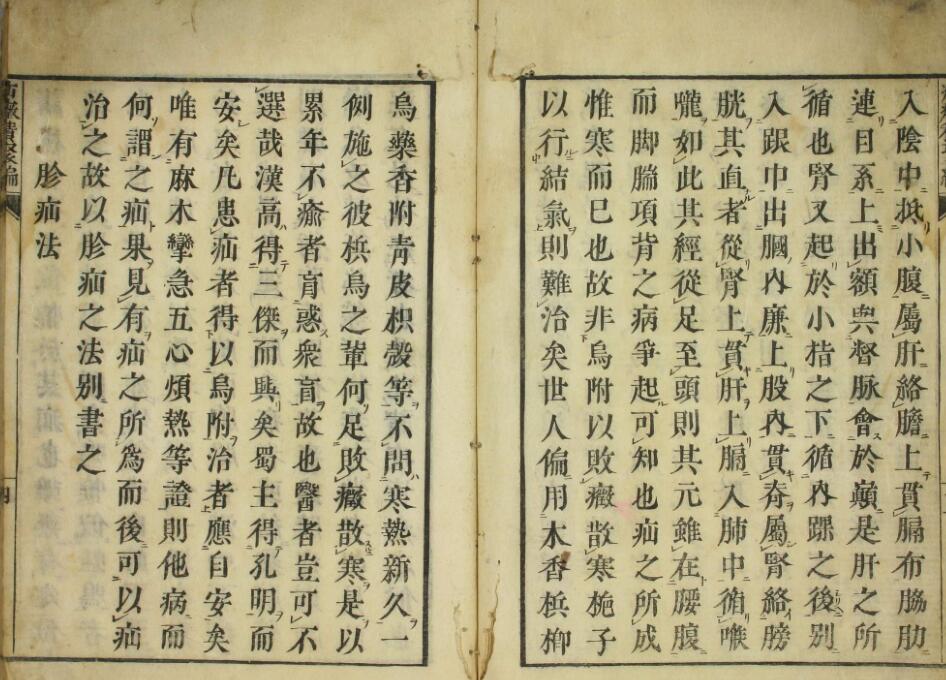 入陰中抵小腹屬肝絡膽上貫膈布脇肋
連目系上出額與督脈會於巓是肝之所
循也腎又起於小指之下循內踝之後別
入跟中出膕內廉上股內貫脊屬腎絡膀
胱其直者從腎上貫肝上膈入肺中循喉
嚨如此其經從足至頭則其元雖在腰腹
而脚腨項背之病爭起可知也疝之所成
惟寒而已也故非烏附以敗癥散寒梔子
以行結氣則難治矣世人偏用木香梹榔
烏藥香附青皮枳殼等不問寒熱新久一
例施之彼梹烏之輩何足敗癥散寒是以
累年不瘉者肓惑衆盲故也醫者豈可不
選哉漢高得三傑而興矣蜀主得孔明而
安矣凡患疝者得以烏附治者應自安矣
唯有麻木攣急五心煩熱等證則他病而
何謂之疝果見有疝之所爲而後可以疝
治之故以胗疝之法別書之
胗疝法
四